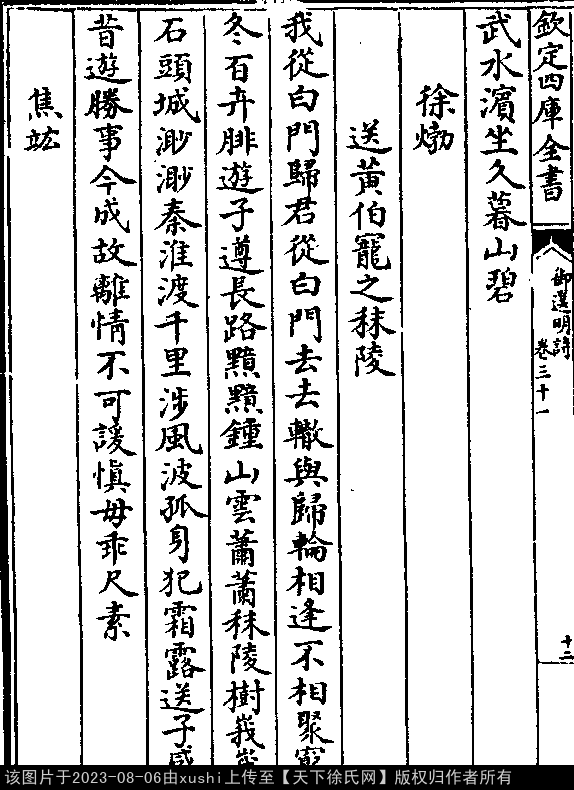 欽定四庫全書
御選明詩
卷三十一
十二
武水濱坐久暮山碧
徐𤊹
送黃伯寵之秣陵
我從白門歸君從白門去去轍與歸輪相逢不相聚窮
冬百卉腓遊子遵長路黯黯鍾山雲蕭蕭秣陵樹峩峩
石頭城渺渺秦淮渡千里涉風波孤身犯霜露送子感
昔遊勝事今成故離情不可諼慎毋乖尺素
焦竑
该图片于2023-08-06由xushi上传至【天下徐氏网】版权归作者所有